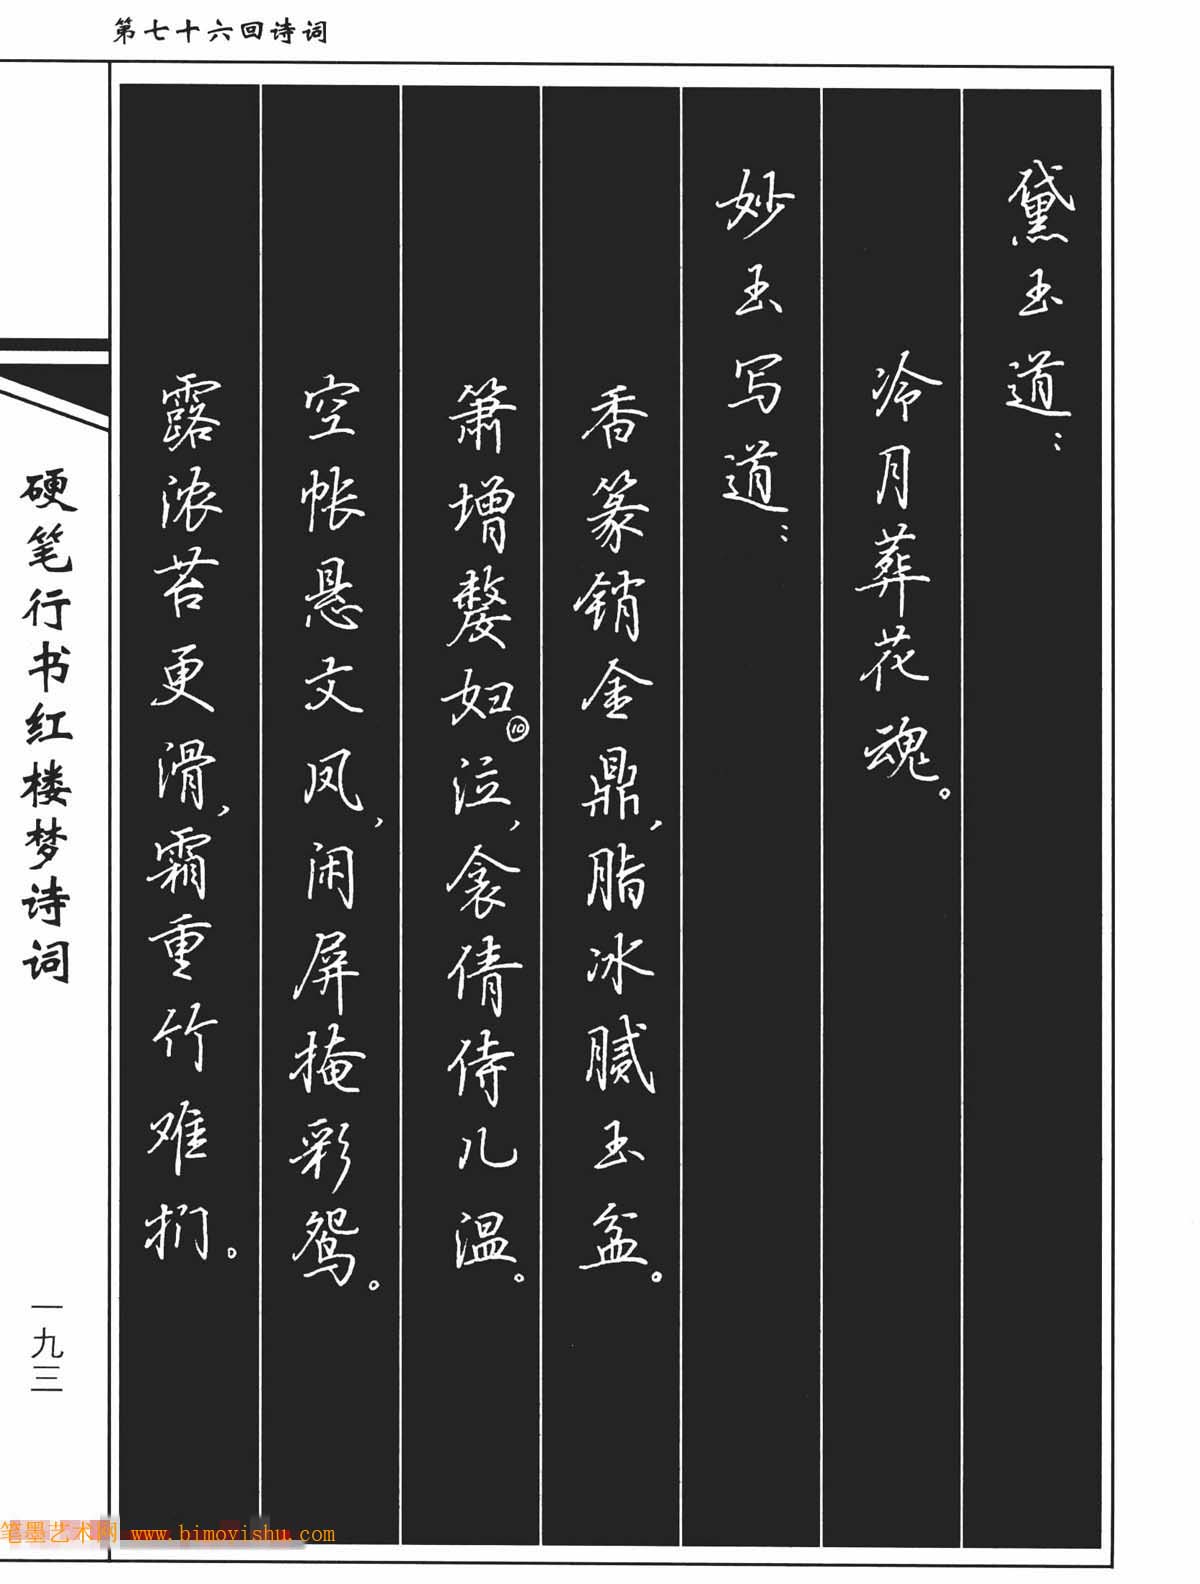 第七十六回诗词
黛玉道：
冷月葬花魂。
妙玉写道：
香篆销金鼎，脂冰腻玉盆。
箫增嫠妇⑩泣，衾倩侍儿温。
空帐悬文凤，闲屏掩彩鸳。
露浓苔更滑，霜重竹难扪。
硬笔行书红楼梦诗词
一九三
笔墨艺术网 www.bimoyishu.com